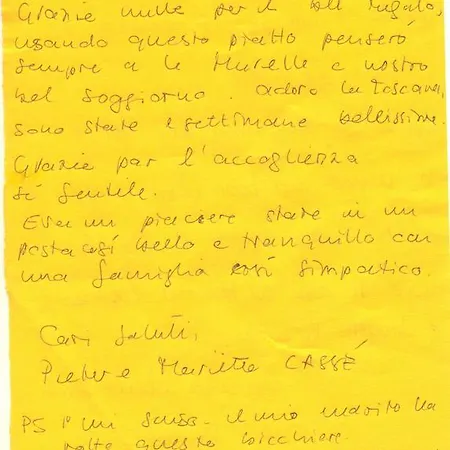 Grazie mille per il bel regalo,
usando questo piatto penserò
sempre a le Murelle e nostro
bel soggiorno. adoro la Toscana,
sono state 2 settimane bellissime.
Grazie per l'accoglienza
sì gentile.
Era un piacere stare in un
posto così bello e tranquillo con
una famiglia così simpatico.
Cari saluti,
Pieter e Marietta CASSÉ
PS mi scusa - il mio marito ha
rotto questo bicchiere.